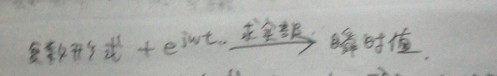 复数形式 + e^jwt 求实部 → 瞬时值.